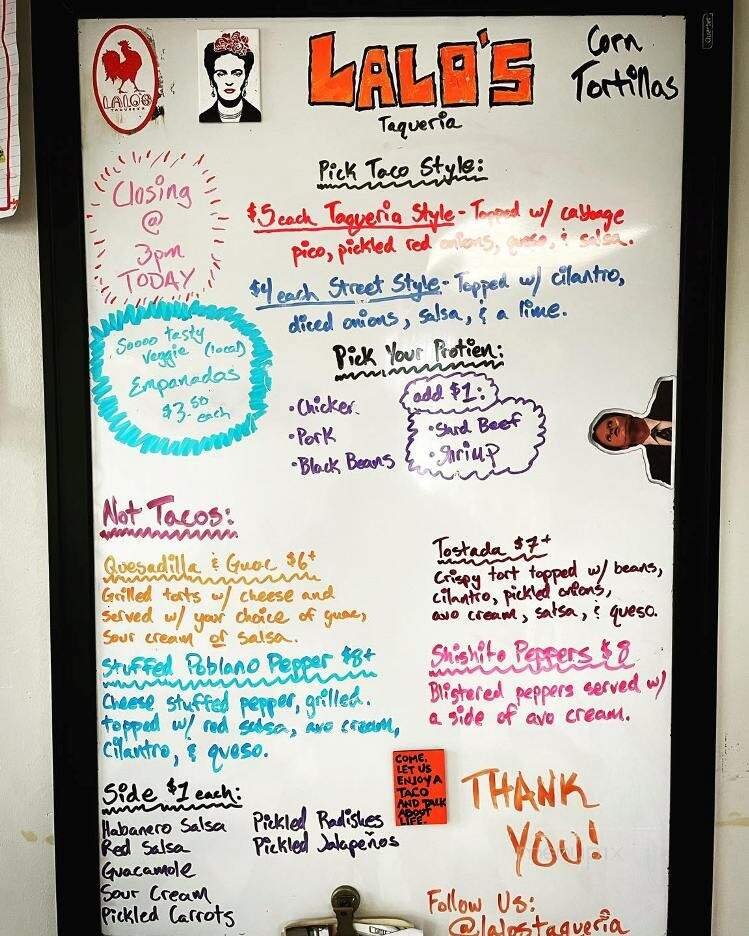 LALO'S
TAQUERIA
LALO'S
Taqueria
Corn
Tortillas
Closing
@
3pm
TODAY
Soooo tasty
veggie (local)
Empanadas
$3.50 each
Pick Taco Style:
$5 each Taqueria Style - Topped w/ cabbage
pico, pickled red onions, queso, & salsa.
$4 each Street Style - Topped w/ cilantro,
diced onions, salsa, & a lime.
Pick Your Protien:
• Chicken
• Pork
• Black Beans
add $1:
• Shrd Beef
• Shrimp
Not Tacos:
Quesadilla & Guac $6+
Grilled torts w/ cheese and
served w/ your choice of guac,
sour cream or salsa.
Stuffed Poblano Pepper $8+
Cheese stuffed pepper, grilled.
topped w/ red salsa, avo cream,
cilantro, & queso.
Tostada $7+
Crispy tort topped w/ beans,
cilantro, pickled onions,
avo cream, salsa, & queso.
Shishito Peppers $8
Blistered peppers served w/
a side of avo cream.
Side $1 each:
Habanero Salsa
Red Salsa
Guacamole
Sour Cream
Pickled Carrots
Pickled Radishes
Pickled Jalapeños
COME,
LET US
ENJOY A
TACO
AND TALK
ABOUT
LIFE.
THANK
YOU!
Follow Us:
@lalostaqueria
Quartet